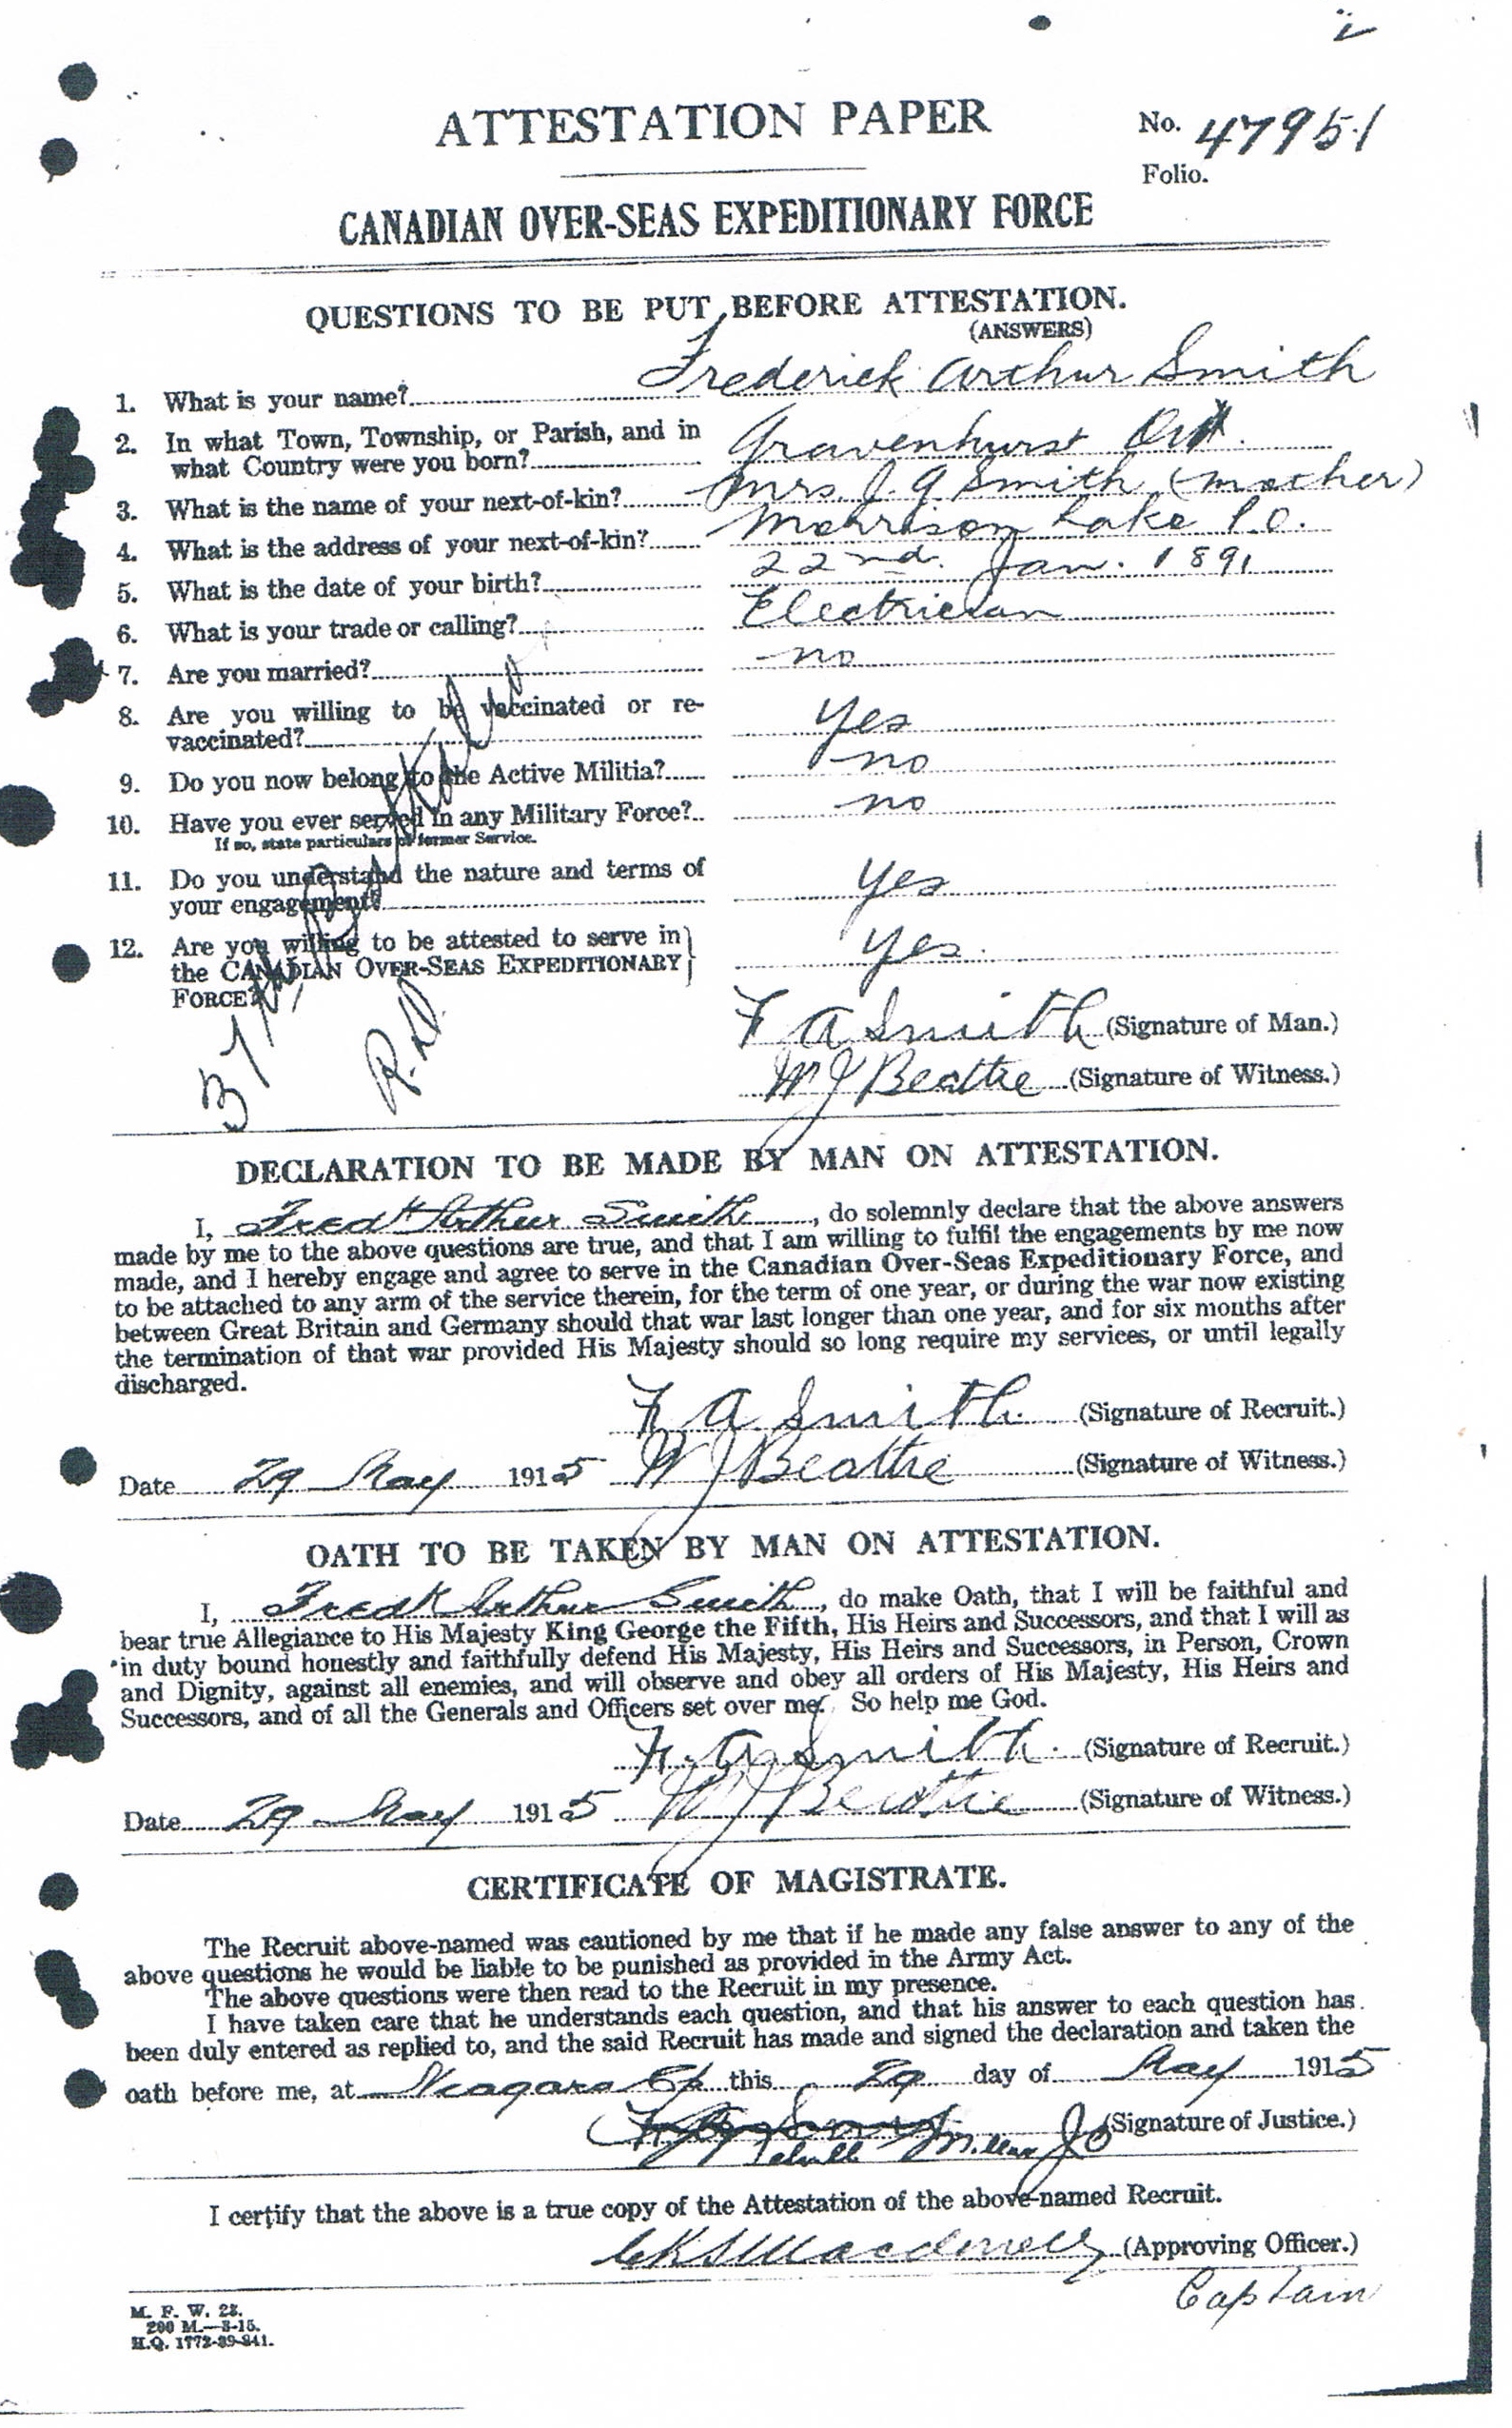 ATTESTATION PAPER
No. 47951
Folio.
CANADIAN OVER-SEAS EXPEDITIONARY FORCE
QUESTIONS TO BE PUT BEFORE ATTESTATION.
(ANSWERS)
1. What is your name? Frederick Arthur Smith
2. In what Town, Township, or Parish, and in
what Country were you born? Gravenhurst Ont.
3. What is the name of your next-of-kin? Mrs. J. A Smith (mother)
4. What is the address of your next-of-kin? Morrison Lake P.O.
5. What is the date of your birth? 22nd. Jan. 1891
6. What is your trade or calling? Electrician
7. Are you married? no
8. Are you willing to be vaccinated or re-
vaccinated? Yes
9. Do you now belong to the Active Militia? no
10. Have you ever served in any Military Force? no
If so, state particulars of former Service.
11. Do you understand the nature and terms of
your engagement? Yes
12. Are you willing to be attested to serve in
the CANADIAN OVER-SEAS EXPEDITIONARY
FORCE? Yes.
37th
F A Smith (Signature of Man.)
W J Beattie (Signature of Witness.)
DECLARATION TO BE MADE BY MAN ON ATTESTATION.
I, Fredk Arthur Smith, do solemnly declare that the above answers
made by me to the above questions are true, and that I am willing to fulfil the engagements by me now
made, and I hereby engage and agree to serve in the Canadian Over-Seas Expeditionary Force, and
to be attached to any arm of the service therein, for the term of one year, or during the war now existing
between Great Britain and Germany should that war last longer than one year, and for six months after
the termination of that war provided His Majesty should so long require my services, or until legally
discharged.
F A Smith. (Signature of Recruit.)
Date 29 May 1915 W J Beattie (Signature of Witness.)
OATH TO BE TAKEN BY MAN ON ATTESTATION.
I, Fredk Arthur Smith, do make Oath, that I will be faithful and
bear true Allegiance to His Majesty King George the Fifth, His Heirs and Successors, and that I will as
in duty bound honestly and faithfully defend His Majesty, His Heirs and Successors, in Person, Crown
and Dignity, against all enemies, and will observe and obey all orders of His Majesty, His Heirs and
Successors, and of all the Generals and Officers set over me. So help me God.
F. A. Smith. (Signature of Recruit.)
Date 29 May 1915 W J Beattie (Signature of Witness.)
CERTIFICATE OF MAGISTRATE.
The Recruit above-named was cautioned by me that if he made any false answer to any of the
above questions he would be liable to be punished as provided in the Army Act.
The above questions were then read to the Recruit in my presence.
I have taken care that he understands each question, and that his answer to each question has
been duly entered as replied to, and the said Recruit has made and signed the declaration and taken the
oath before me, at Niagara Cp this 29 day of May 1915
(Signature of Justice.)
I certify that the above is a true copy of the Attestation of the above-named Recruit.
(Approving Officer.)
Captain
M. F. W. 23.
200 M.—3-15.
H.Q. 1772-39-841.